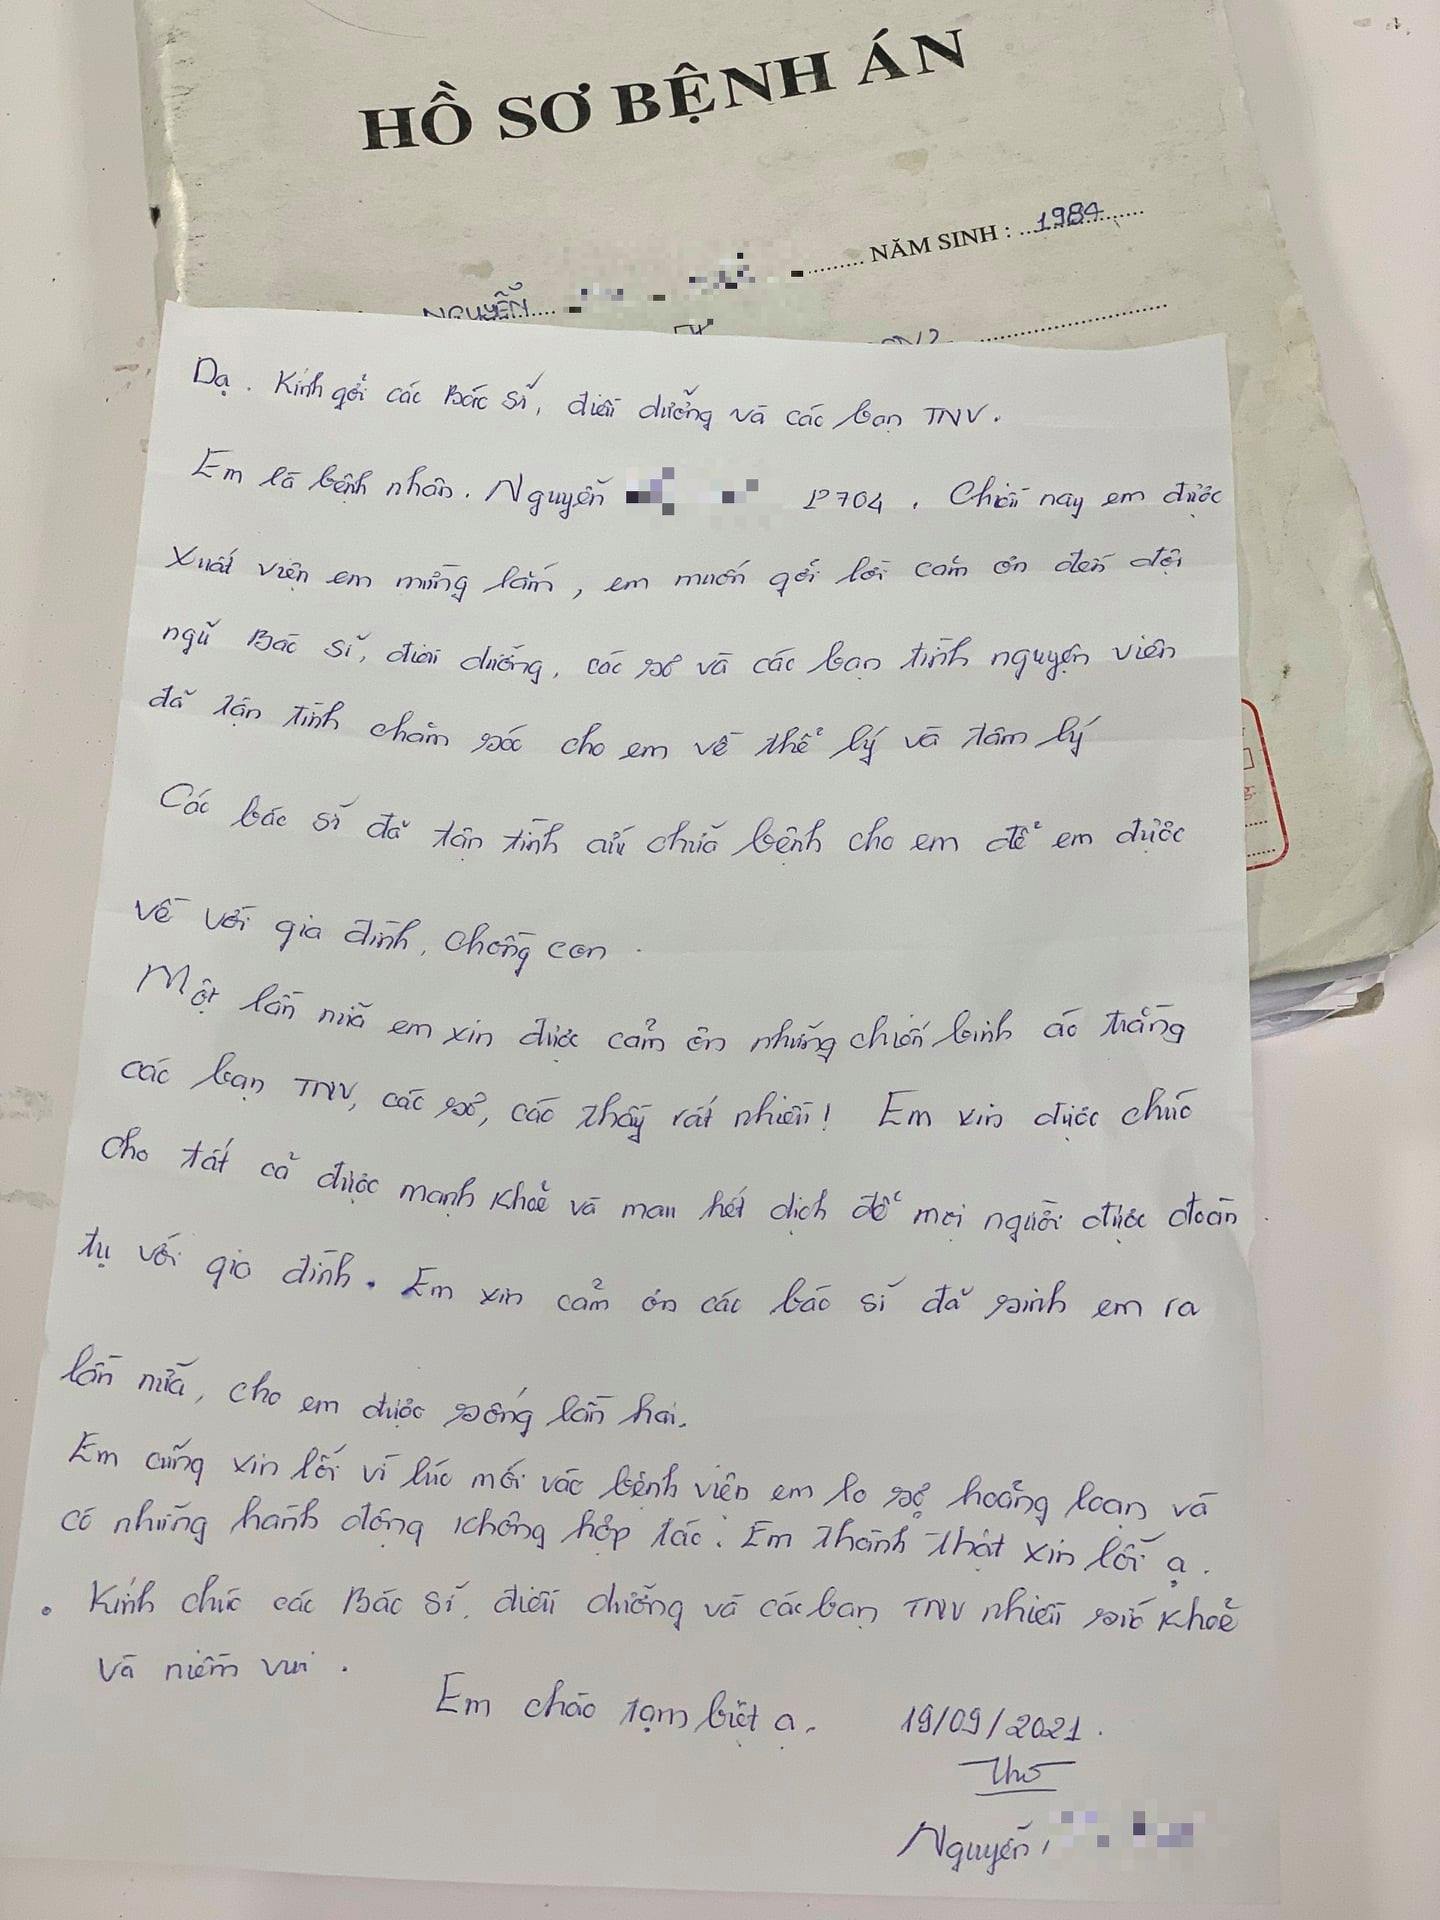 HỒ SƠ BỆNH ÁN
NGUYỄN NĂM SINH : 1984
Dạ. Kính gởi các Bác sĩ, điều dưỡng và các bạn TNV.
Em là bệnh nhân. Nguyễn P704. Chiều nay em được
xuất viện em mừng lắm, em muốn gởi lời cảm ơn đến đội
ngũ Bác sĩ, điều dưỡng, các sơ và các bạn tình nguyện viên
đã tận tình chăm sóc cho em về thể lý và tâm lý
Các bác sĩ đã tận tình cứu chữa bệnh cho em để em được
về với gia đình, chồng con.
Một lần nữa em xin được cảm ơn những chiến binh áo trắng
các bạn TNV, các sơ, các thầy rất nhiều! Em xin được chúc
cho tất cả được mạnh khoẻ và mau hết dịch để mọi người được đoàn
tụ với gia đình. Em xin cảm ơn các bác sĩ đã sinh em ra
lần nữa, cho em được sống lần hai.
Em cũng xin lỗi vì lúc mới vào bệnh viện em lo sợ hoảng loạn và
có những hành động không hợp tác. Em thành thật xin lỗi ạ.
Kính chúc các Bác sĩ, điều dưỡng và các bạn TNV nhiều sức khoẻ
và niềm vui.
Em chào tạm biệt ạ. 19/09/2021.
Nguyễn